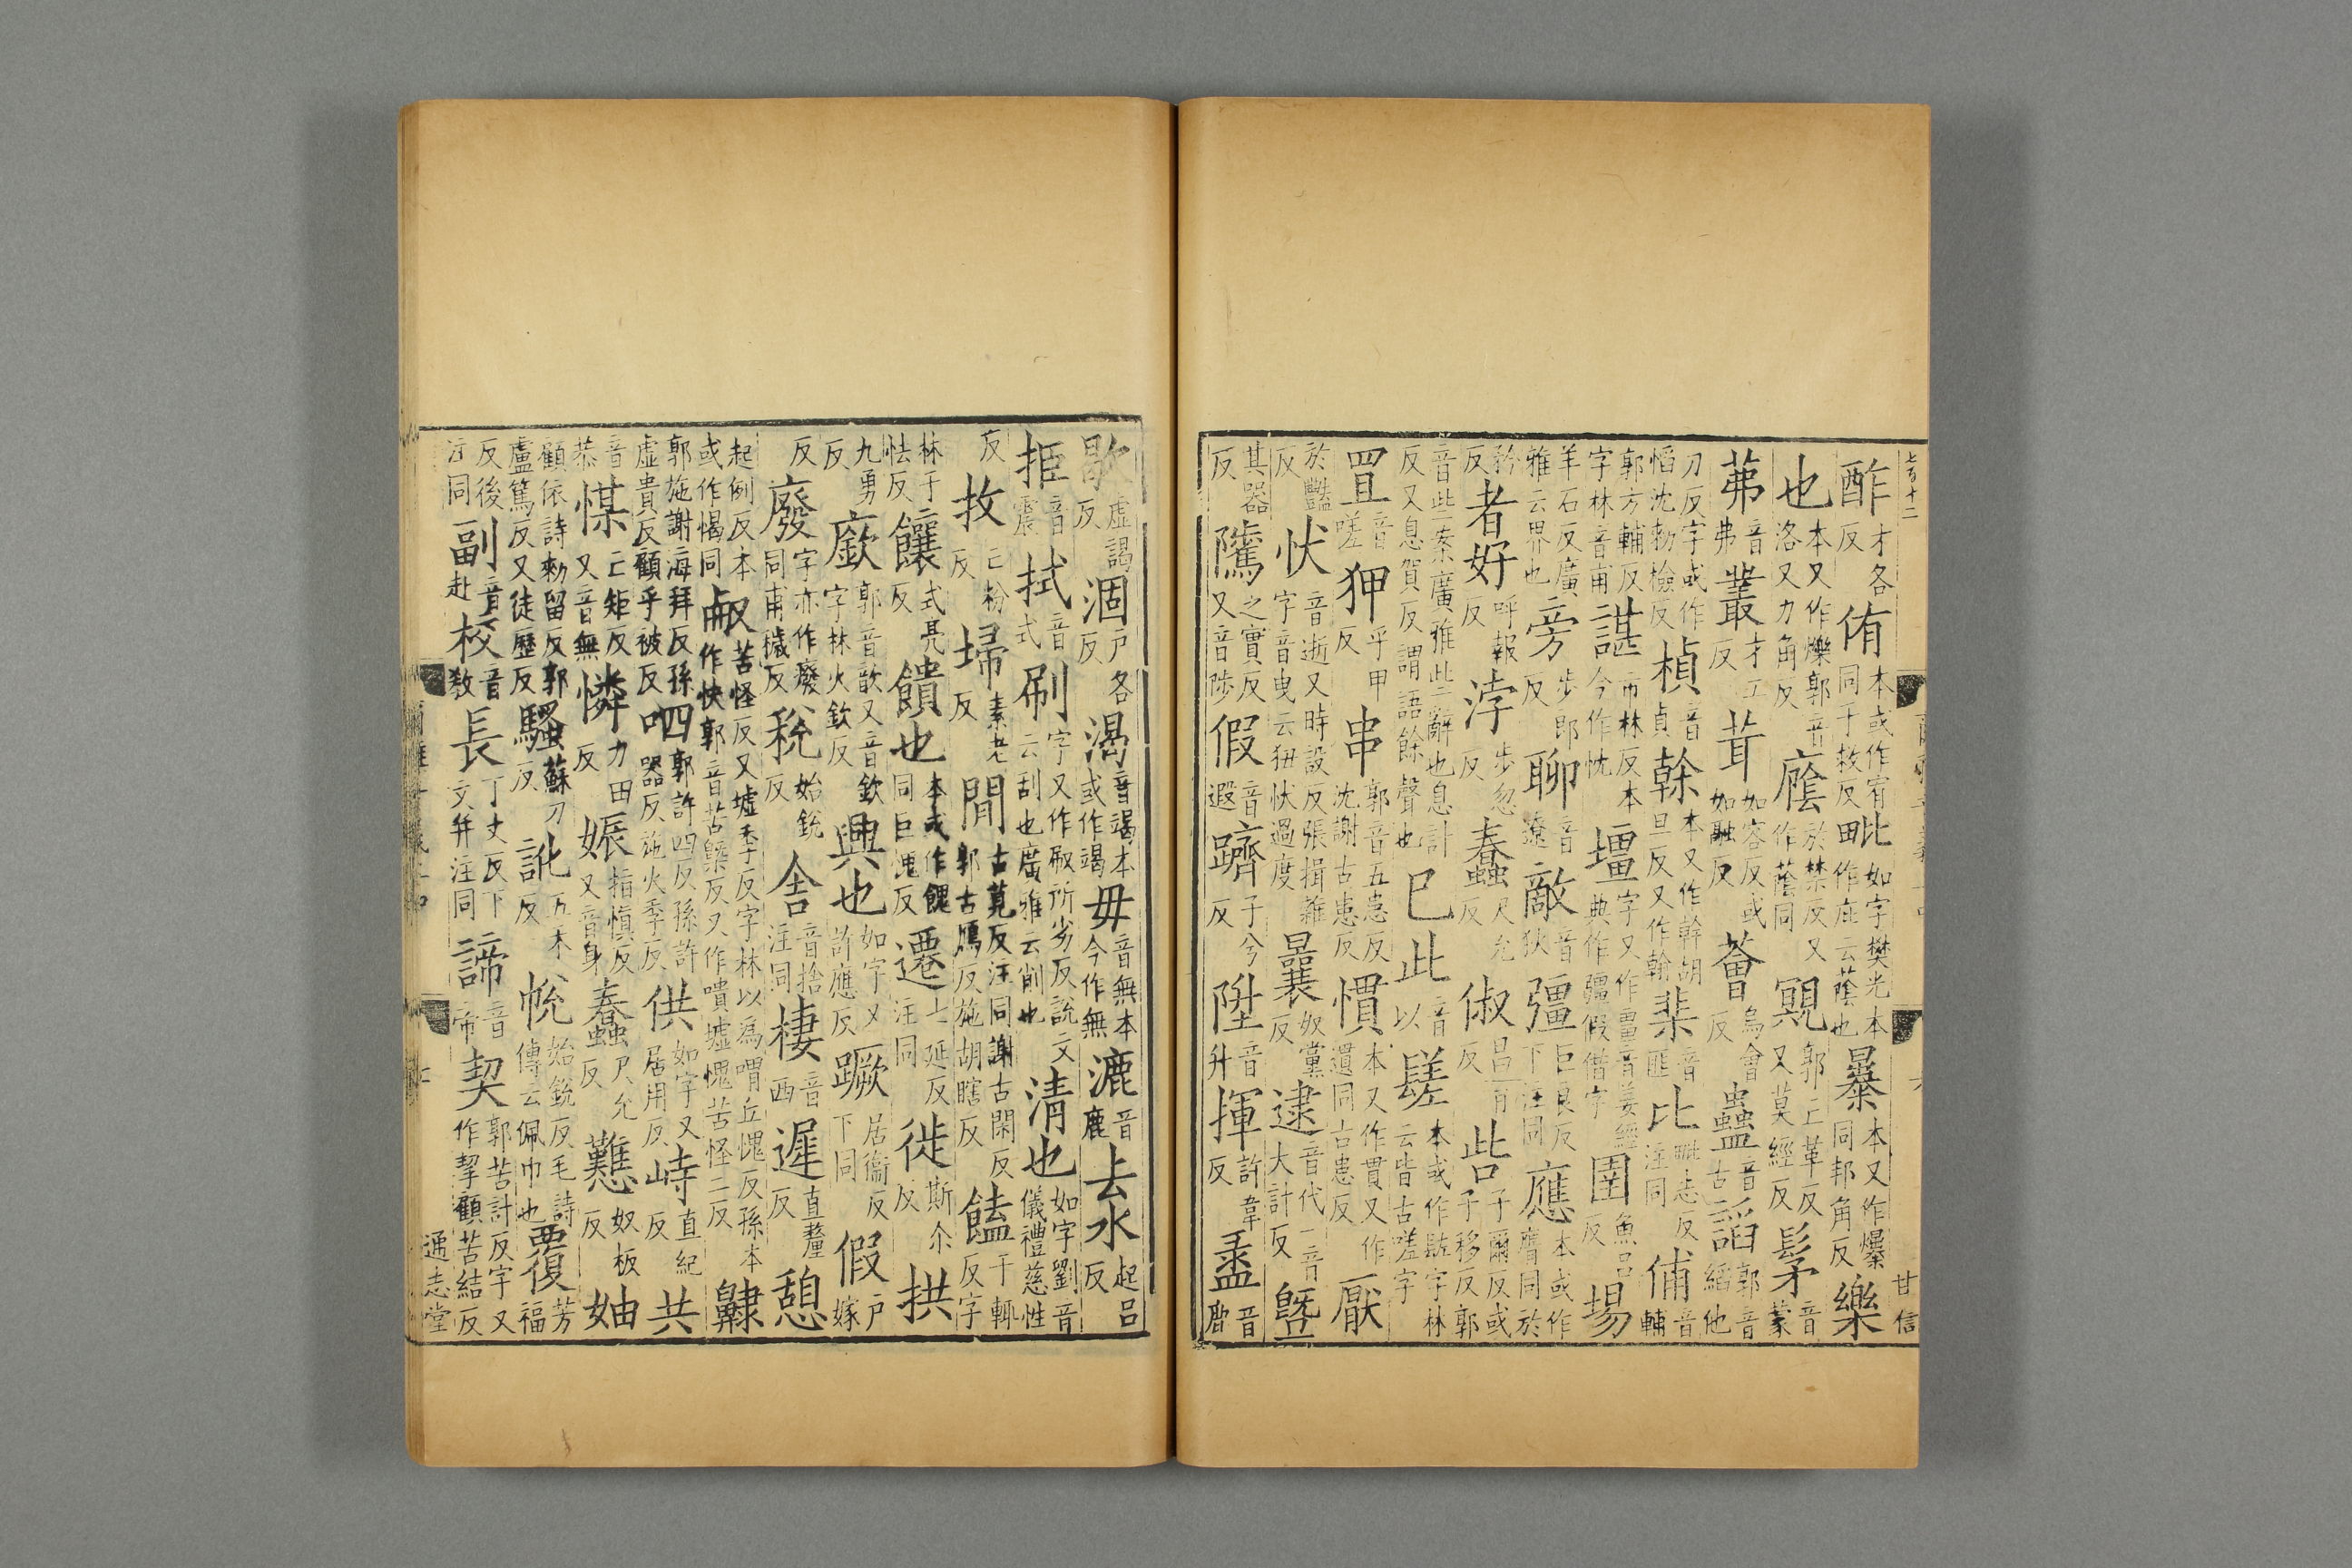 七百十二　甘信
酢才各反侑本或作宥同于救反毗如字樊光本作庇云蔭也暴本又作爆同邦角反樂
也本又作爍郭音洛又力角反廕於禁反又作蔭同覭郭亡革反又莫經反髳音蒙
茀音弗叢才工反茸如容反或如融反薈烏會反蠱音古謟郭音縚他
刀反字或作慆沈勑檢反楨音貞榦本又作幹胡旦反又作翰棐音匪比毗志反注同俌音輔
郭方輔反字林音甫諶市林反本今作忱壃字又作畺音姜經典作彊假借字圉魚呂反場
羊石反廣雅云界也旁步郎反聊音遼敵音狄彊巨良反下注同應本或作譍同於
矜反者好呼報反浡步忽反蠢尺允反俶昌育反呰子爾反或子移反郭
音些案廣雅些辭也息計反又息賀反謂語餘聲也已此音以䰈本或作字林云皆古嗟字
罝音嗟狎乎甲反串郭音五患反沈謝古患反慣本又作貫又作遺同古患反厭
於豔反忕音逝又時設反張揖雜字音曳云狃忕過度曩奴黨反逮音代一音大計反曁
其器反騭之實反又音陟假音遐躋子兮反陞音升揮許韋反盝音鹿
歇虛謁反涸户各反渴音竭本或作竭毋音無本今作無漉音鹿去水起呂反
挋音震拭音式刷字又作㕞所劣反說文云刮也廣雅云削也清也如字劉音儀禮慈性
反抆亡粉反埽素老反間古莧反注同謝古閑反郭古鴈反施胡瞎反饁于輒反字
林于怯反饟式亮反饋也本或作餽同巨愧反遷七延反注同徙斯尒反拱
九勇反廞郭音歆又音欽字林火欽反興也如字又許應反蹶居衞反下同假户嫁
反廢字亦作癈同甫穢反稅始銳反舍音捨注同棲音西遲直釐反憩
起例反本或作愒同㕟苦怪反又墟季反字林以爲喟丘愧反孫本作快郭音苦槩反又作嘳墟愧苦怪二反齂
郭施謝海拜反孫虛貴反顧乎被反呬郭許四反孫許器反施火季反供如字又居用反峙直紀反共
音恭㦄亡矩反又音無憐力田反娠指慎反又音身蠢尺允反戁奴板反妯
顧依詩勑留反郭盧篤反又徒歷反騷蘇刀反訛五禾反帨始銳反毛詩傳云佩巾也覆芳福
反後注同副音赴校音教長丁丈反下文并注同諦音帝契郭苦計反字又作挈顧苦結反
通志堂